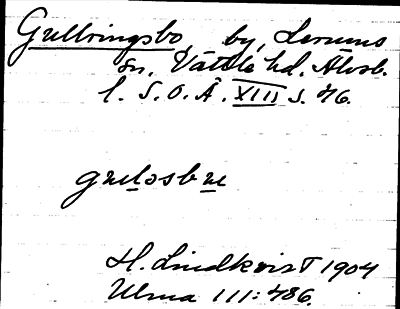 Gullringsbo by, Lerums
sn. Vättle hd. Älvsb.
l. S.O.Ä. XIII s. 76.
H. Lindkvist 1904
Ulma 111:786.